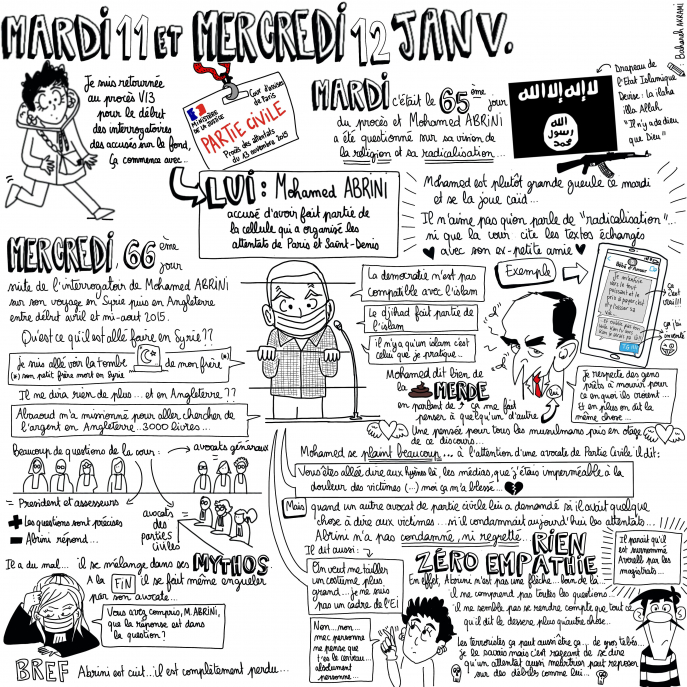 MARDI 11 ET MERCREDI 12 JANV.
Bahareh AKRAMI
Je suis retournée
au procès V13
pour le début
des interrogatoires
des accusés sur le fond,
Ça commence avec...
Cour d'assises
de Paris
MINISTÈRE
DE LA JUSTICE
PARTIE CIVILE
Procès des attentats
du 13 novembre 2015
MARDI c'était le 65ème jour
du procès et Mohamed ABRINI
a été questionné sur sa vision de
la religion et sa radicalisation...
لا إله إلا الله
الله
رسول
محمد
Drapeau de
l'Etat Islamique
Devise : la ilaha
illa Allah
"Il n'y a de dieu
que Dieu"
LUI : Mohamed ABRINI
accusé d'avoir fait partie de
la cellule qui a organisé les
attentats de Paris et Saint-Denis
Mohamed est plutôt grande gueule ce mardi
et se la joue caïd...
Il n'aime pas qu'on parle de "radicalisation"...
ni que la cour cite les textos échangés
avec son ex-petite amie
MERCREDI 66ème
jour
suite de l'interrogatoire de Mohamed ABRINI
sur son voyage en Syrie puis en Angleterre
entre début avril et mi-août 2015.
Qu'est ce qu'il est allé faire en Syrie ??
Je suis allé voir la tombe de mon frère (*)
(*) son petit frère mort en Syrie
Il me dira rien de plus... et en Angleterre ??
Abaaoud m'a missionné pour aller chercher de
l'argent en Angleterre...3000 livres...
Beaucoup de questions de la cour :
avocats généraux
Président et assesseurs
+ Les questions sont précises
- Abrini répond...
avocats
des
parties
civiles
Il a du mal... il se mélange dans ses MYTHOS
A la FIN il se fait même engueuler
par son avocate...
Vous avez compris, M. ABRINI,
que la réponse est dans
la question ?
BREF Abrini est cuit...il est complètement perdu...
La démocratie n'est pas
compatible avec l'islam
Le djihad fait partie de
l'islam
il n'y a qu'un islam c'est
celui que je pratique...
Exemple
Bébé d'Amour
ça c'est
vrai!!!
ça j'ai
inventé
Mohamed dit bien de
la MERDE
en parlant de ça me fait
penser à quelqu'un d'autre
lui
Je respecte des gens
prêts à mourir pour
ce en quoi ils croient...
Et en plus on dit la
même chose...
Une pensée pour tous les musulmans pris en otage
de ce discours...
Mohamed se plaint beaucoup... à l'attention d'une avocate de Partie Civile il dit :
Vous êtes allée dire aux Hyènes là, les médias, que j'étais imperméable à la
douleur des victimes (...) moi ça m'a blessé...
Mais quand un autre avocat de partie civile lui a demandé si il avait quelque
chose à dire aux victimes ... si il condamnait aujourd'hui les attentats...
Abrini n'a pas condamné, ni regretté... RIEN
ZÉRO EMPATHIE
Il dit aussi :
On veut me tailler
un costume plus
grand...je ne suis
pas un cadre de l'EI
Non...non...
mec personne
ne pense que
t'es le cerveau
absolument
personne...
En effet, Abrini n'est pas une flèche... loin de là...
il ne comprend pas toutes les questions
il ne semble pas se rendre compte que tout ce
qu'il dit le dessert plus qu'autre chose...
Les terroristes ça peut aussi être ça... de gros tebés...
je le savais mais c'est rageant de se dire
qu'un attentat aussi meurtrier peut reposer
sur des débiles comme lui...
Il paraît qu'il
est surnommé
Averell par les
magistrats...